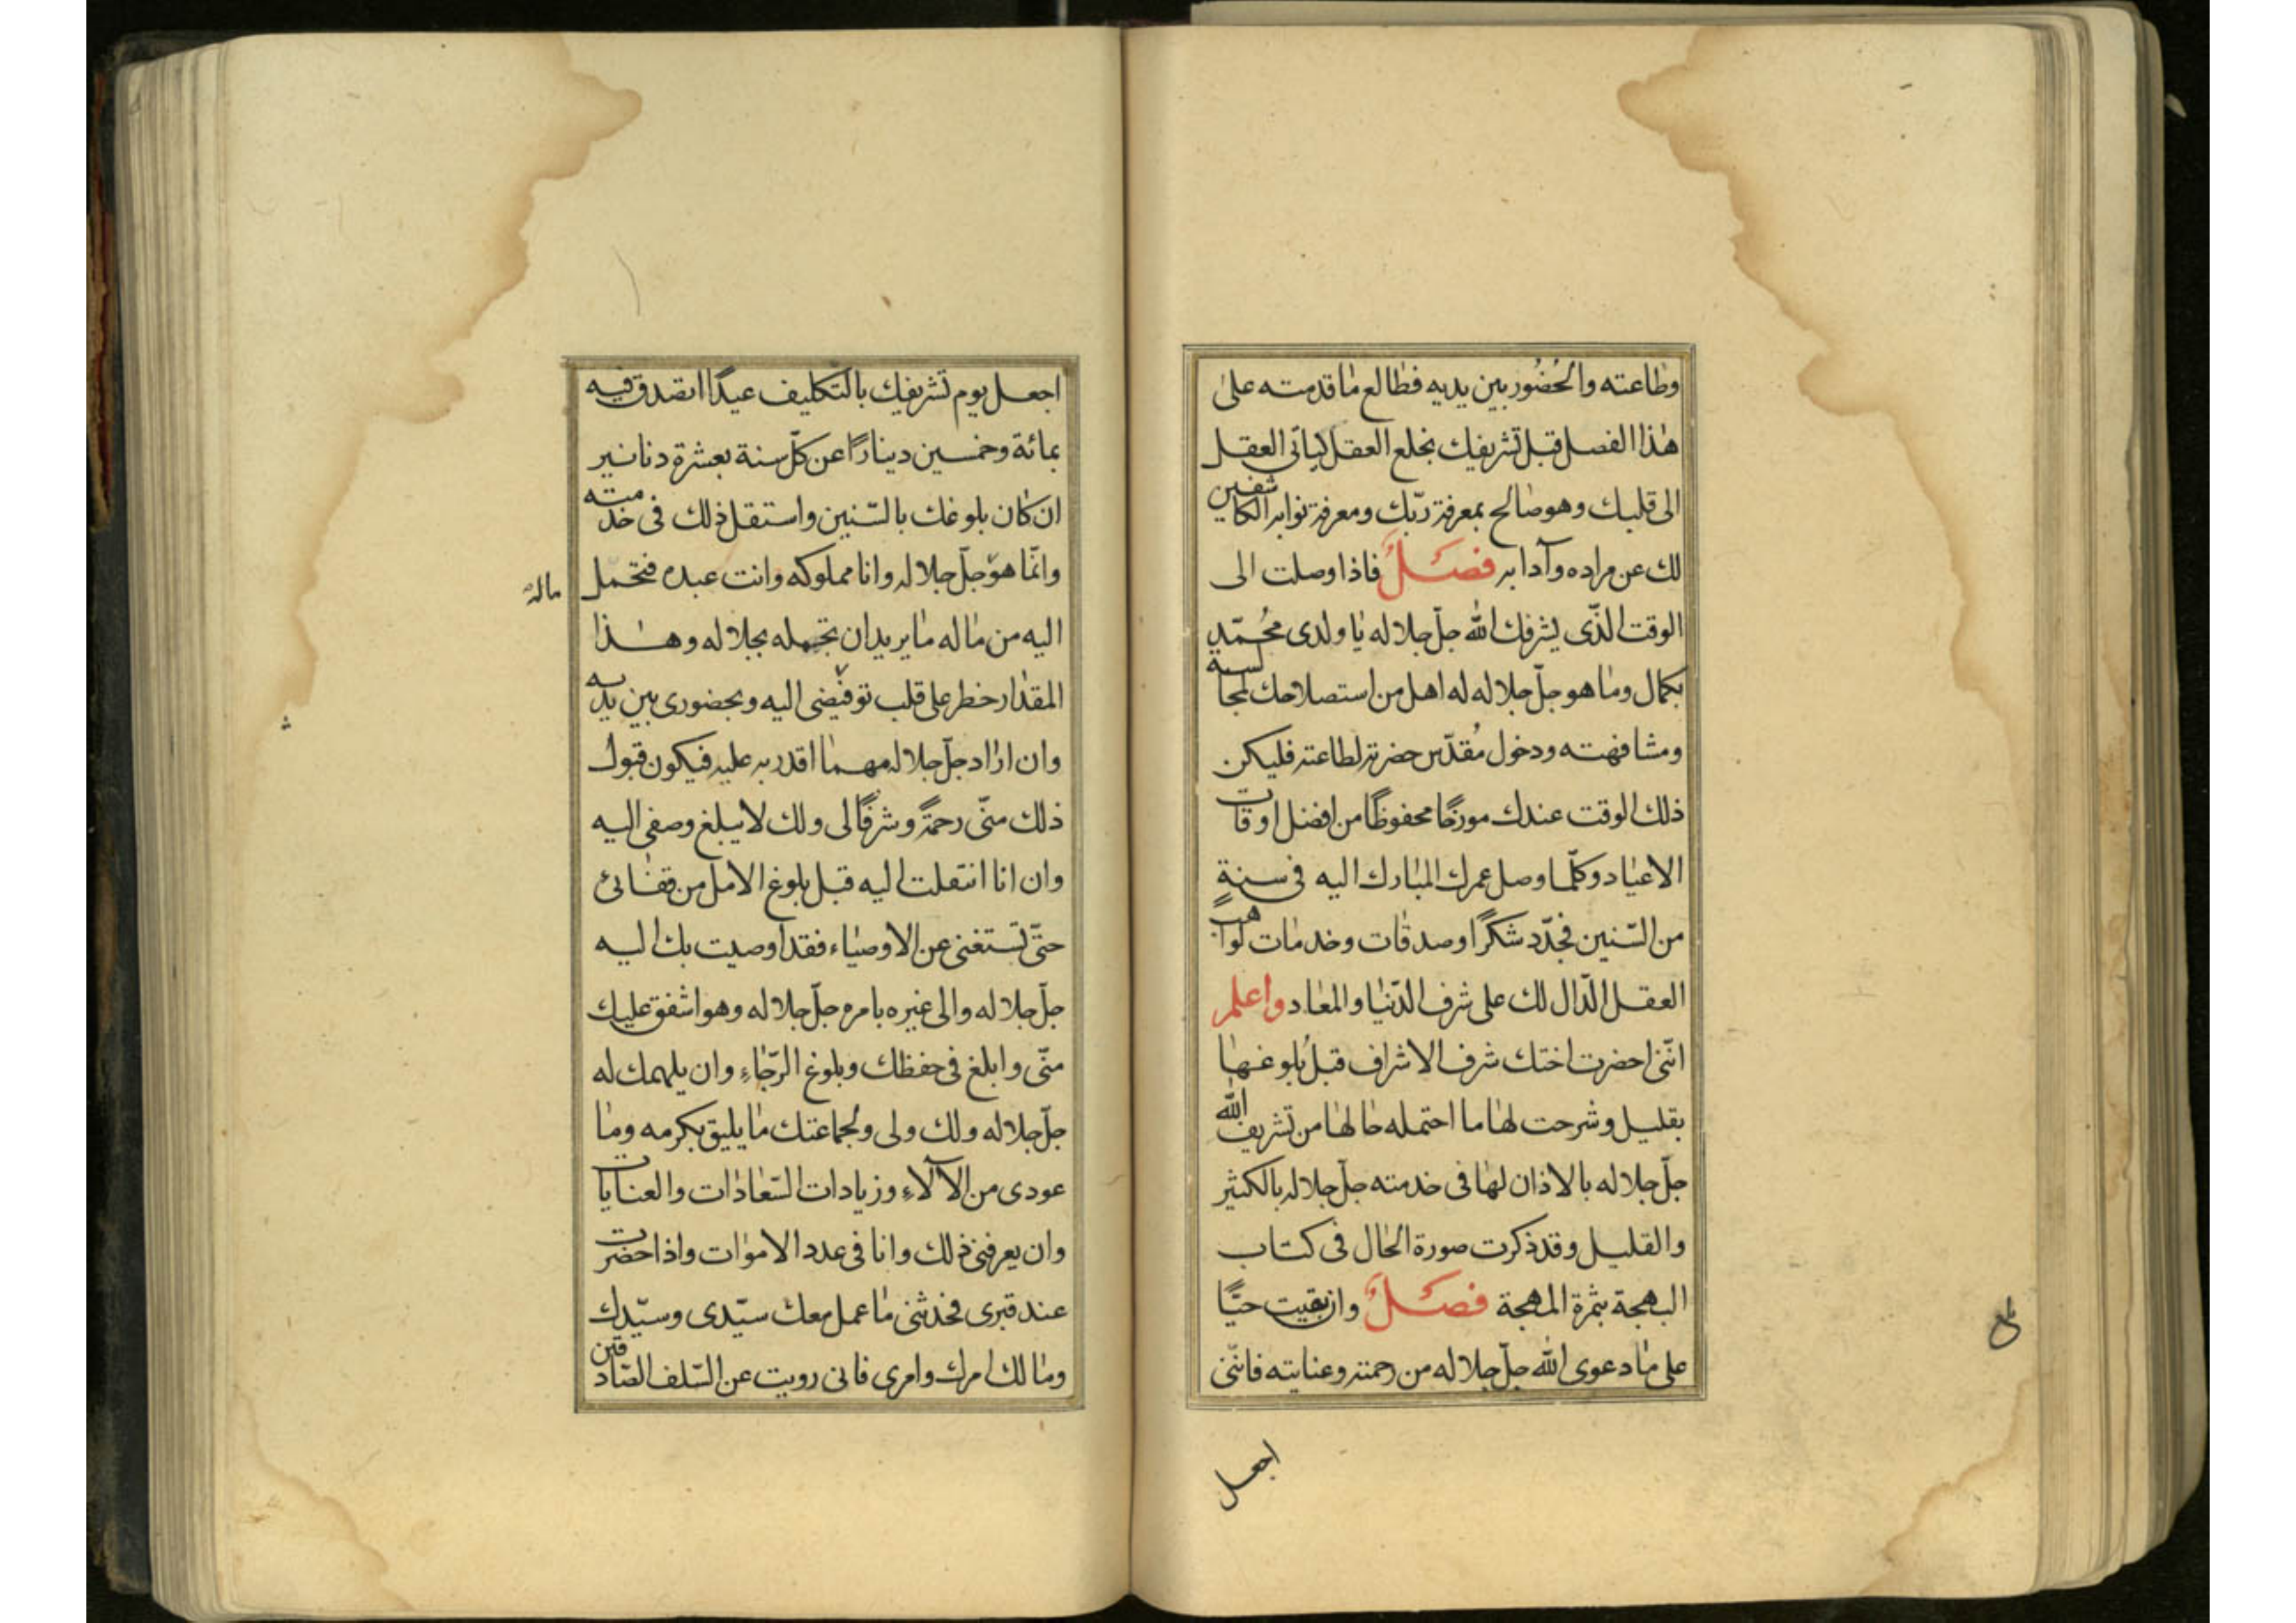 وطاعته والحُضُور بين يديه فطالع ما قدمته على
هذا الفصل قبل تشريفك بخلع العقل ليأتي العقل
الى قلبك وهو صالح بمعرفة ربّك ومعرفة نوابه الكاشفين
لك عن مراده وآدابه فصَلٌ فاذا وصلت الى
الوقت الذّى يشرفك الله جلّ جلاله يا ولدى محُمّد
بكمال وما هو جلّ جلاله له اهل من استصلاحك لمجالسة
ومشافهته ودخول مُقدّس حضرته لطاعته فليكن
ذلك الوقت عندك مورخًا محفوظًا من افضل اوقات
الاعياد وكلّما وصل عمرك المبارك اليه فى سنةٍ
من السّنين فجدّد شكرًا وصدقات وخدمات لواهب
العقل الدّال لك على شرف الدّنيا والمعاد واعلم
انّنى احضرت اختك شرف الاشراف قبل بُلوغها
بقليل وشرحت لها ما احتمله حالها من تشريف الله
جلّ جلاله بالاذان لها فى خدمته جلّ جلاله بالكثير
والقليل وقد ذكرت صورة الحال فى كتاب
البهجة بثمرة المهجة فصَلٌ وان بقيت حيًّا
على ما دعوى الله جلّ جلاله من رحمته وعنايته فانّنى
اجعل
اجعل يوم تشريفك بالتكليف عيدًا اتصدق فيه
بمائة وخمسين دينارًا عن كلّ سنة بعشرة دنانير
ان كان بلوغك بالسّنين واستقل ذلك فى خدمته
وانّما هو جلّ جلاله وانا مملوكه وانت عبده فتحمل
ماله
اليه من ماله ما يريد ان تحمله بجلاله وهذا
المقدار خطر على قلب توفيضى اليه وبحضورى بين يديه
وان اراد جلّ جلاله مهما اقدر به عليه فيكون قبول
ذلك منّى رحمةً وشرفًا لى ولك لا يبلغ وصفى اليه
وان انا انتقلت اليه قبل بلوغ الامل من قضائ
حتّى تستغنى عن الاوصياء فقد اوصيت بك اليه
جلّ جلاله والى غيره بامره جلّ جلاله وهو اشفق عليك
منّى وابلغ فى حفظك وبلوغ الرّجاءِ وان يلهمك له
جلّ جلاله ولك ولى ولجماعتك ما يليق بكرمه وما
عودى من الآلاءِ وزيادات السّعادات والعنايات
وان يعرفنى ذلك وانا فى عدد الاموات واذا حضرت
عند قبرى فحدثنى ما عمل معك سيّدى وسيّدك
ومالك امرك وامرى فانى رويت عن السّلف الصّادقين